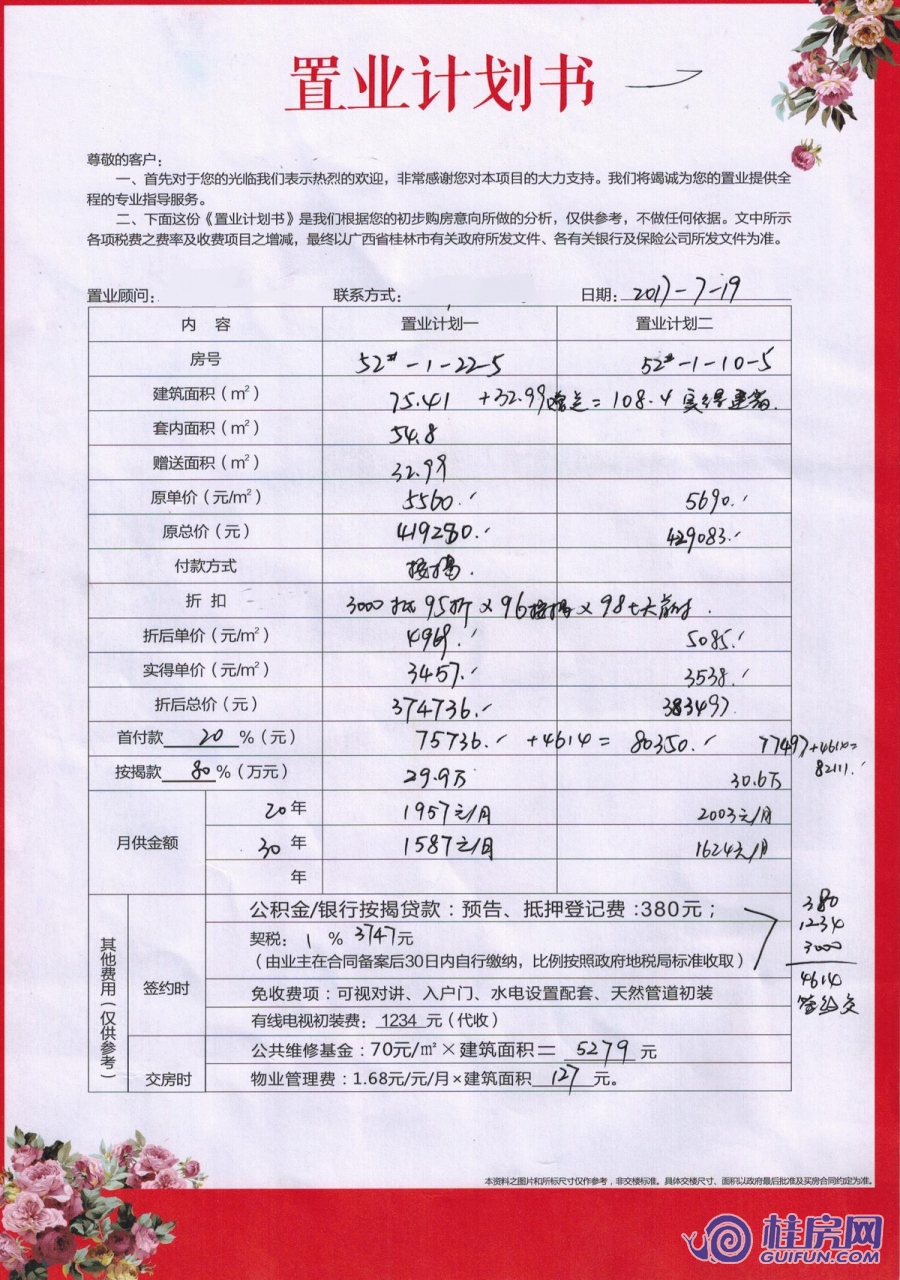 置业计划书
尊敬的客户：
一、首先对于您的光临我们表示热烈的欢迎，非常感谢您对本项目的大力支持。我们将竭诚为您的置业提供全
程的专业指导服务。
二、下面这份《置业计划书》是我们根据您的初步购房意向所做的分析，仅供参考，不做任何依据。文中所示
各项税费之费率及收费项目之增减，最终以广西省桂林市有关政府所发文件、各有关银行及保险公司所发文件为准。
置业顾问： 联系方式： 日期：2017-7-19
内 容 置业计划一 置业计划二
房号 52#-1-22-5 52#-1-10-5
建筑面积（m²） 75.41 +32.99赠送=108.4 实得
套内面积（m²） 54.8
赠送面积（m²） 32.99
原单价（元/m²） 5560.- 5690.-
原总价（元） 419280.- 429083.-
付款方式 按揭.
折 扣 3000抵 95折×96按揭×98七天前付.
折后单价（元/m²） 4969.- 5085.-
实得单价（元/m²） 3457.- 3538.-
折后总价（元） 374736.- 383497.
首付款 20 %（元） 75736.- +4614= 80350.- 77497+4614=
82111.-
按揭款 80 %（万元） 29.9万 30.6万
月供金额 20 年 1957元/月 2003元/月
30 年 1587元/月 1624元/月
年
其他费用（仅供参考）
签约时
公积金/银行按揭贷款：预告、抵押登记费：380元；
契税： 1 % 3747元
（由业主在合同备案后30日内自行缴纳，比例按照政府地税局标准收取）
免收费项：可视对讲、入户门、水电设置配套、天然管道初装
有线电视初装费： 1234 元（代收）
380
1234
3000
4614
签约交
交房时
公共维修基金：70元/㎡×建筑面积= 5279 元
物业管理费：1.68元/元/月×建筑面积 127 元。
本资料之图片和所标尺寸仅作参考，非交楼标准。具体交楼尺寸、面积以政府最后批准及买房合同约定为准。
桂房网
GUIFUN.COM